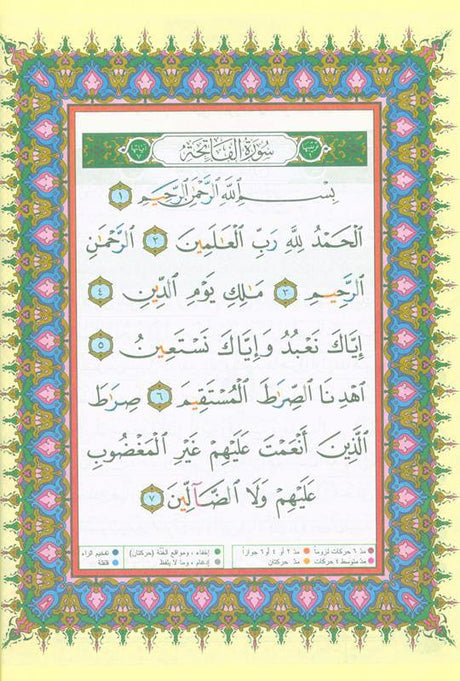 سُورَةُ الْفَاتِحَةِ
بِسْمِ ٱللَّهِ ٱلرَّحْمَٰنِ ٱلرَّحِيمِ ١
ٱلْحَمْدُ لِلَّهِ رَبِّ ٱلْعَٰلَمِينَ ٢ ٱلرَّحْمَٰنِ
ٱلرَّحِيمِ ٣ مَٰلِكِ يَوْمِ ٱلدِّينِ ٤
إِيَّاكَ نَعْبُدُ وَإِيَّاكَ نَسْتَعِينُ ٥
ٱهْدِنَا ٱلصِّرَٰطَ ٱلْمُسْتَقِيمَ ٦ صِرَٰطَ
ٱلَّذِينَ أَنْعَمْتَ عَلَيْهِمْ غَيْرِ ٱلْمَغْضُوبِ
عَلَيْهِمْ وَلَا ٱلضَّآلِّينَ ٧
مدّ ٦ حركات لزوماً مدّ ٢ أو ٤ أو ٦ جوازاً إخفاء، ومواقع الغُنَّة (حركتان) تفخيم الراء
مدّ حركتان إدغام، وما لا يُلفظ قلقلة